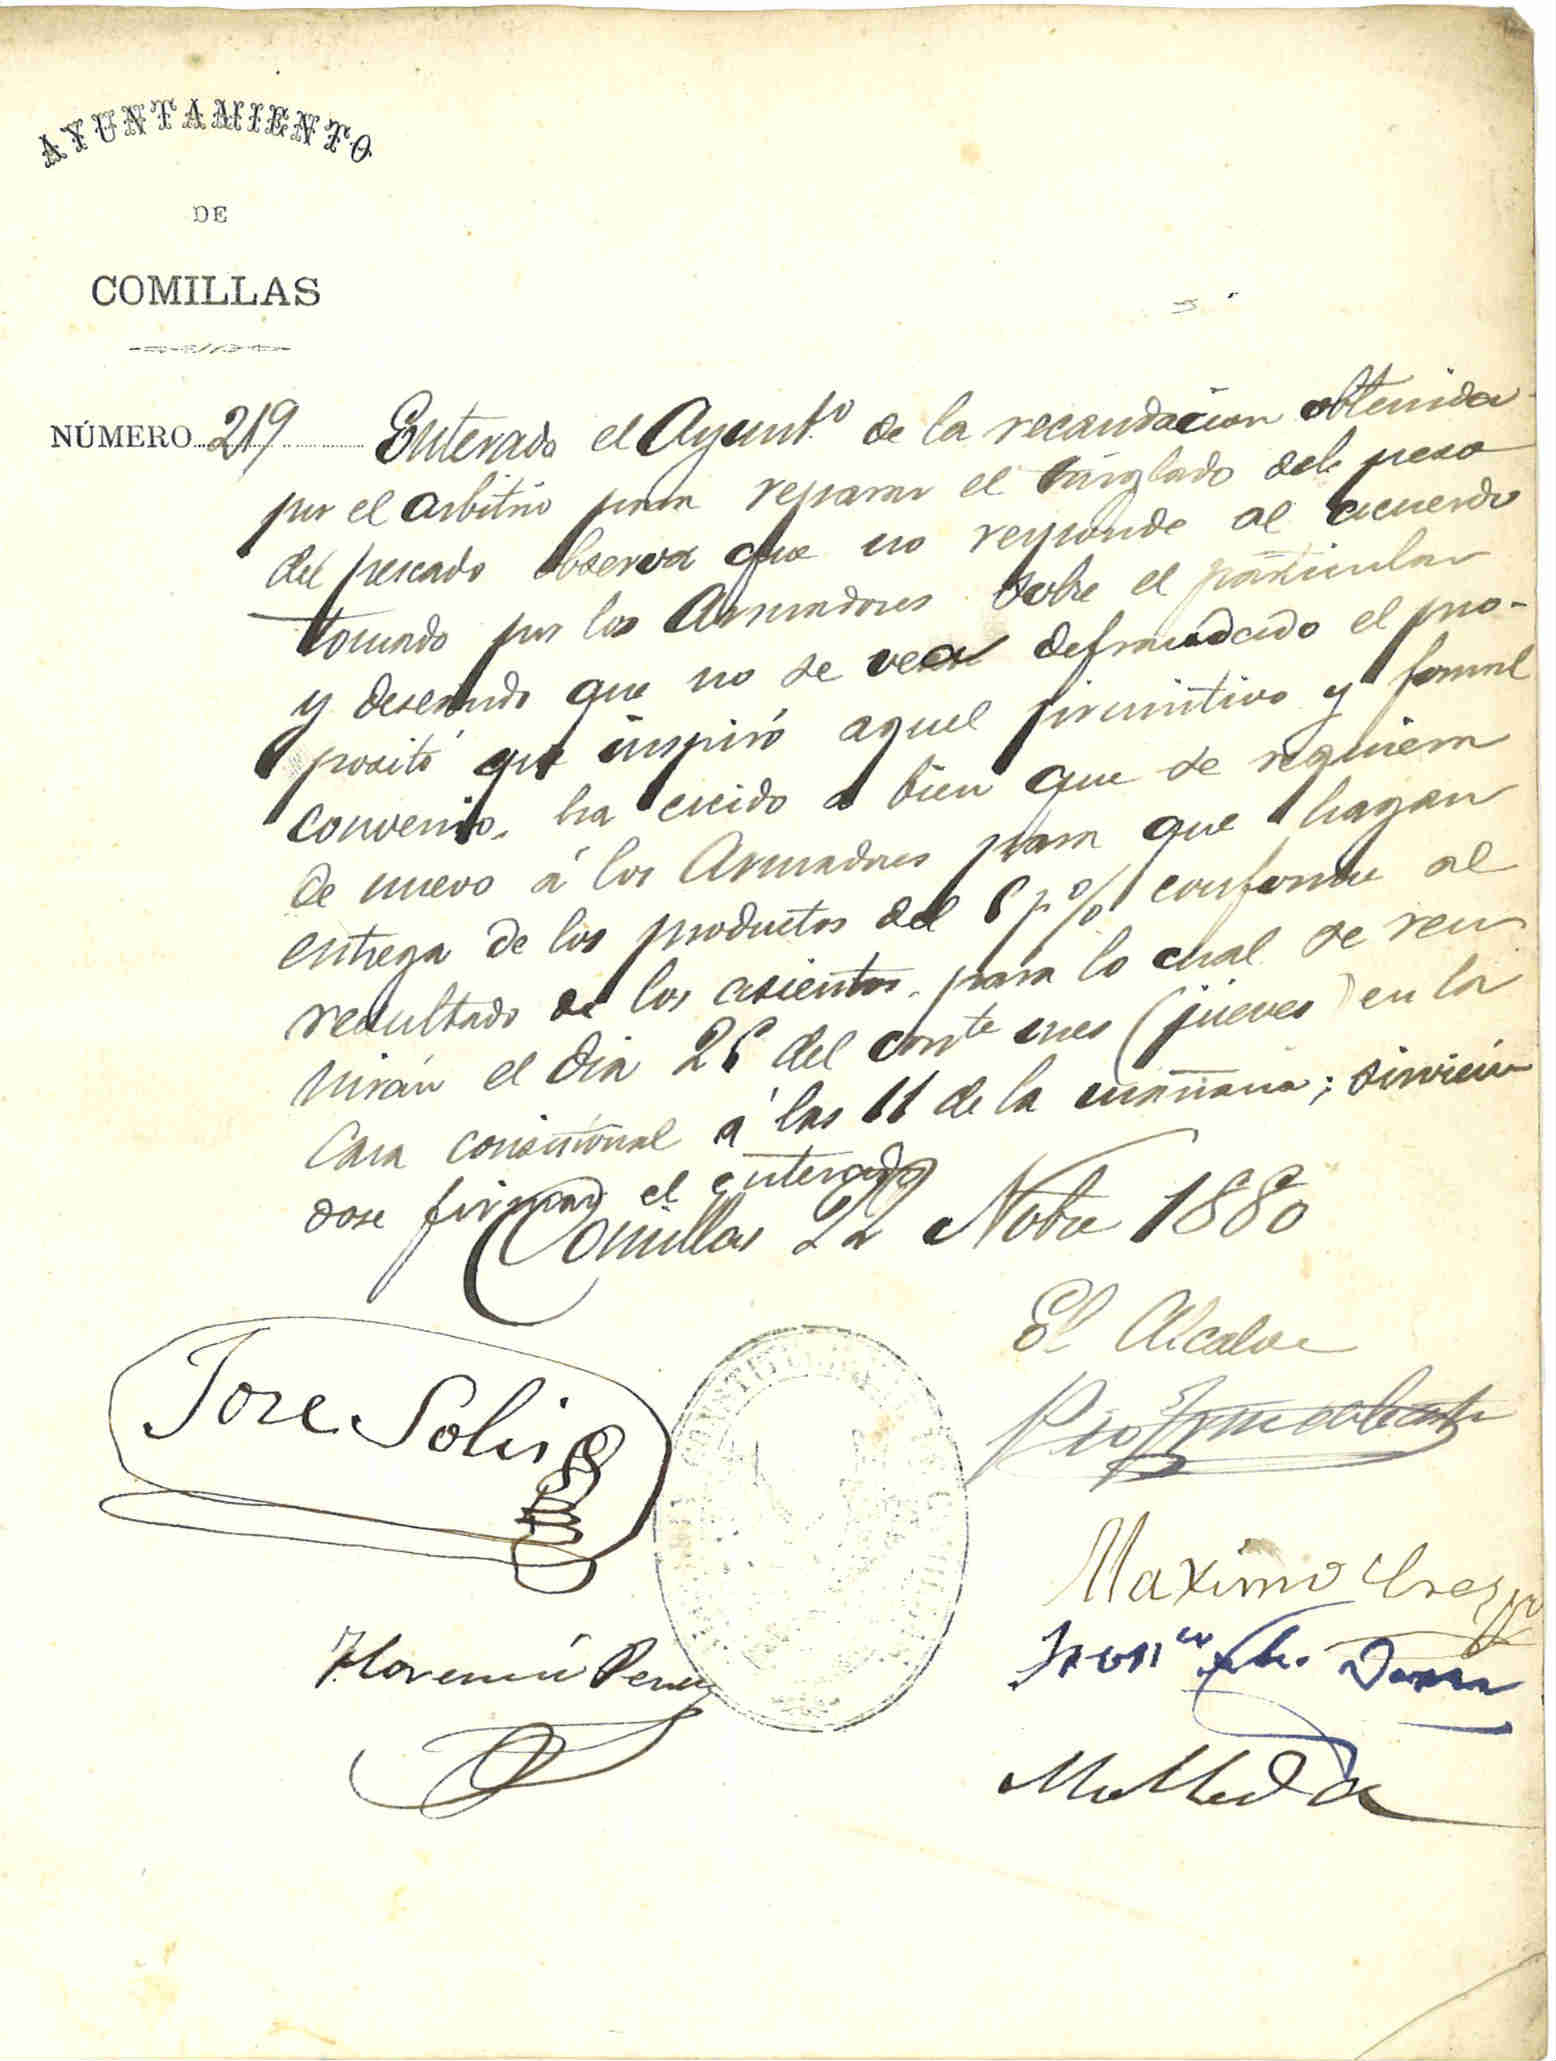 AYUNTAMIENTO
DE
COMILLAS
NÚMERO 219
Enterado el Ayunt.º de la recaudacion obtenida
por el arbitrio para reparar el tinglado del peso
del pescado observa que no responde al acuerdo
tomado por los Armadores sobre el particular
y deseando que no se vea defraudado el pro-
posito que inspiró aquel primitivo y formal
convenio, ha creido a bien que se requiera
de nuevo á los Armadores para que hagan
entrega de los productos del 6 p% conforme al
resultado de los asientos, para lo cual se reu
nirán el dia 25 del corrte mes (jueves) en la
Casa consistorial á las 11 de la mañana; sirvien
dose firmar el enterado
Comillas 22 Nobre 1880
El Alcalde
Jose Solis
Pio
Maximo
Florencio Perez
Molleda